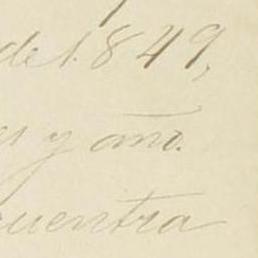 de 1849,
es y año.
cuentra